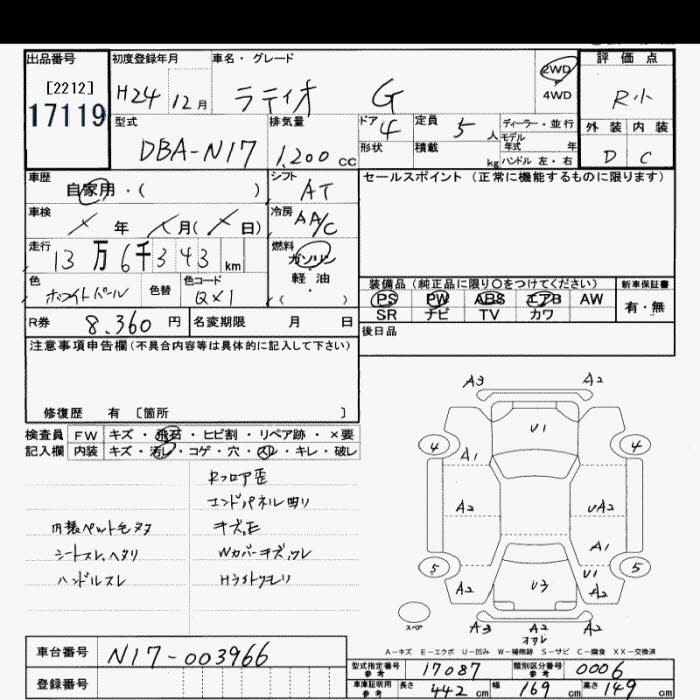 出品番号
[2212]
17119
初度登録年月
H24 12月
車名・グレード
ラティオ G
2WD
4WD
評価点
R小
外装 内装
D C
型式
DBA-N17
排気量
1,200 cc
ドア 4
形状
定員 5 人
積載 kg
ディーラー・並行
モデル年式 年
ハンドル 左・右
車歴
自家用・( )
シフト
AT
セールスポイント(正常に機能するものに限ります)
車検
× 年 × 月(× 日)
冷房
AA/C
走行
13万6千343 km
燃料
ガソリン
軽・油
( )
色
ホワイトパール
色替
色コード
QX1
装備品(純正品に限り○をつけてください)
新車保証書
PS PW ABS エアB AW
SR ナビ TV カワ
有・無
R券 8,360 円
名変期限 月 日
後日品
注意事項申告欄(不具合内容等は具体的に記入して下さい)
修復歴 有 〔箇所 〕
検査員
記入欄
FW キズ・飛石・ヒビ割・リペア跡・×要
内装 キズ・汚レ・コゲ・穴・スレ・キレ・破レ
Rフロア歪
エンドパネル凹リ
内装ペット毛ヌケ
キズ,E
シートスレ,ヘタリ
Wカバーキズ,ワレ
ハンドルスレ
Hライトクモリ
A3 A2
U1
4 4
A1
A2 UA2
A1
5 5
A2 U3 U1 A2
スペア
A3 A2 A2
オクレ
A-キズ E-エクボ U-凹み W-補修跡 S-サビ C-腐食 XX-交換済
車台番号
N17-003966
登録番号
型式指定番号 参考 17087
類別区分番号 参考 0006
車庫証明用 参考 長さ 442 cm 幅 169 cm 高さ 149 cm